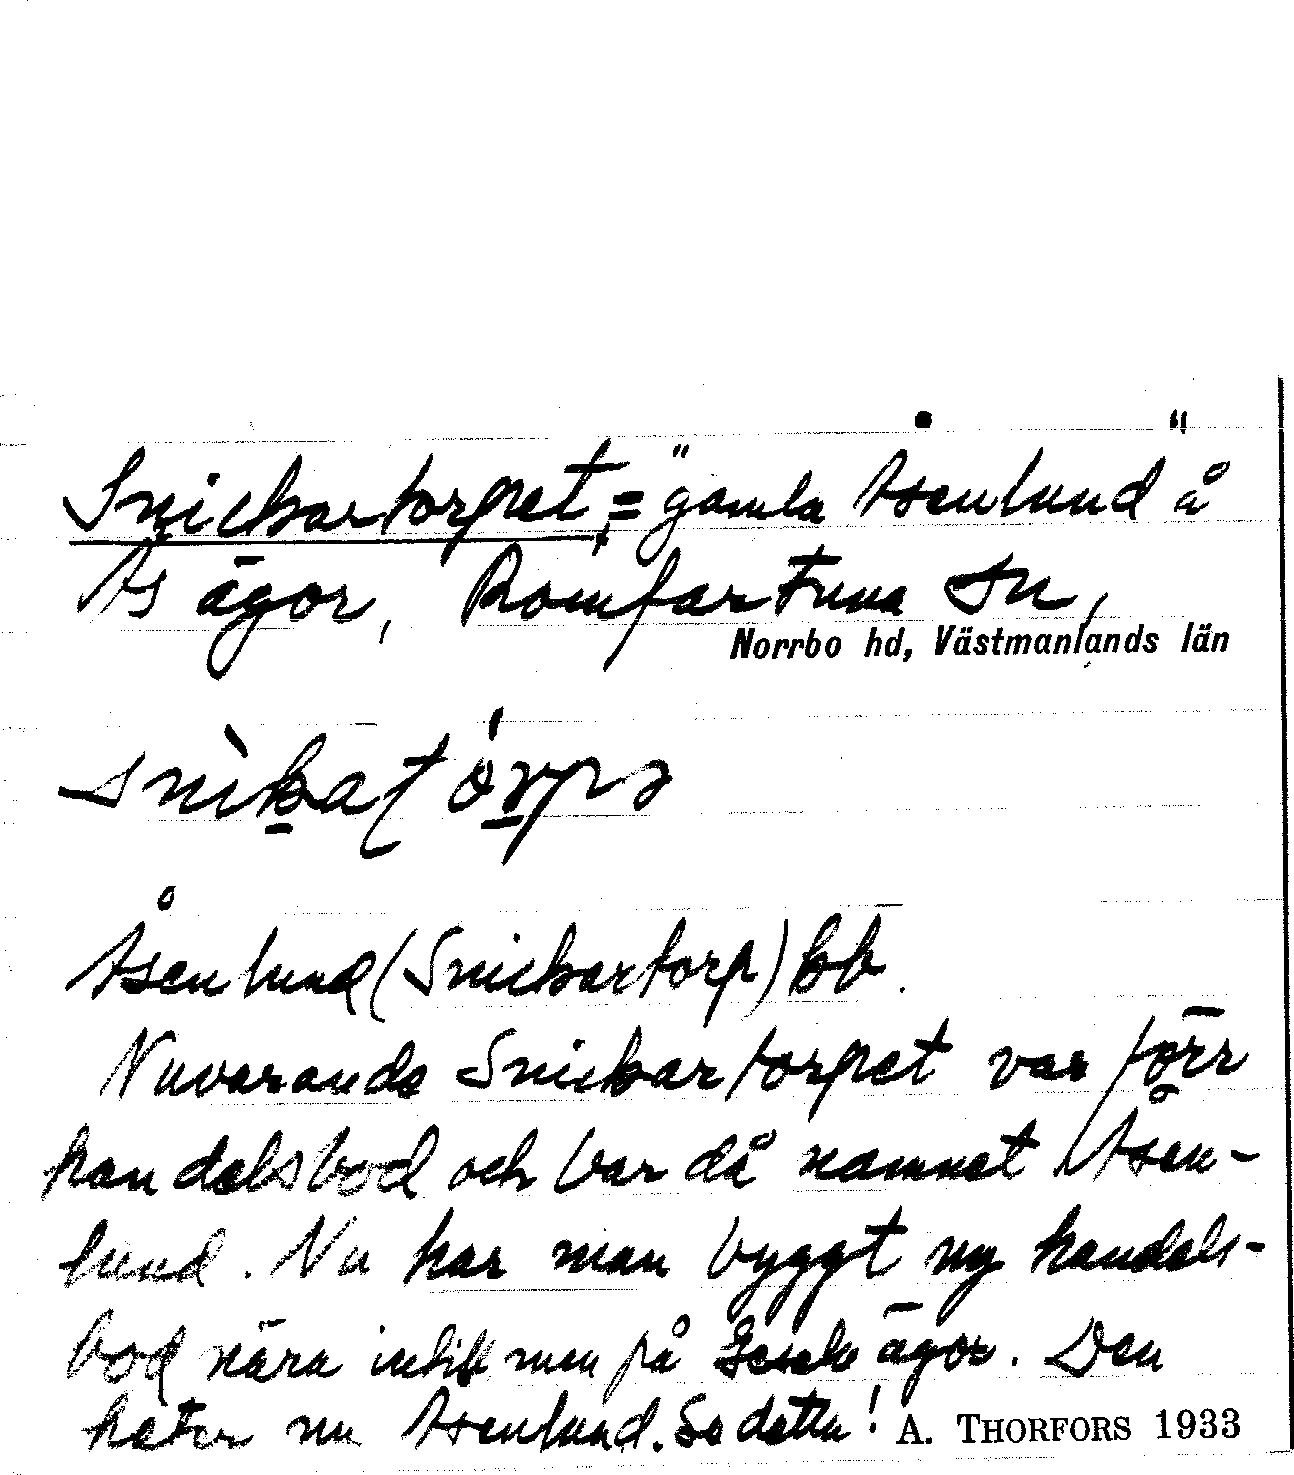 Snickartorpet, = "gamla Åsenlund" å
Ås ägor, Romfartuna sn,
Norrbo hd, Västmanlands län
snìkat órpə
Åsenlund (Snickartorp) bb.
Nuvarande Snickartorpet var förr
handelsbod och var då namnet Åsen-
lund. Nu har man byggt ny handels-
bod nära intill men på ägor. Den
heter nu Åsenlund. Se detta!
A. THORFORS 1933